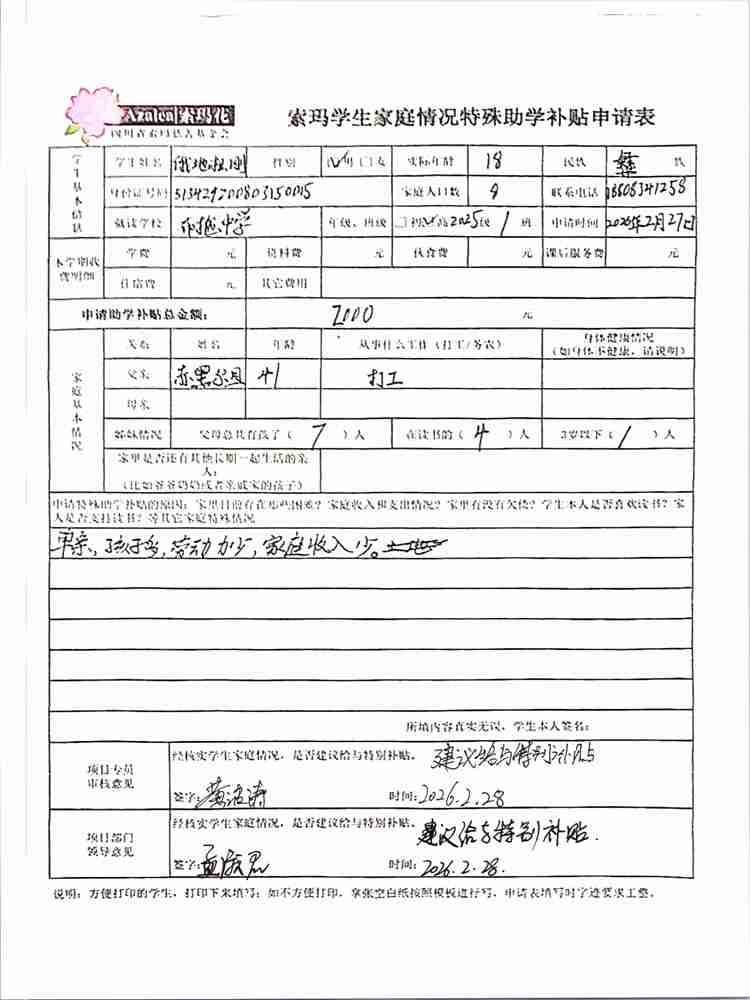 Azalea 索玛花
四川省索玛慈善基金会
索玛学生家庭情况特殊助学补贴申请表
学生基本信息
学生姓名 性别 男 女 实际年龄 18 民族 彝 族
身份证号码 513429200803150015 家庭人口数 联系电话
就读学校 中学 年级、班级 初 高 2025级 1 班 申请时间 2026年2月27日
本学期收费明细
学费 元 资料费 元 伙食费 元 课后服务费 元
住宿费 元 其它费用
申请助学补贴总金额: 2000 元
家庭基本情况
关系 姓名 年龄 从事什么工作(打工/务农) 身体健康情况(如身体不健康,请说明)
父亲 41 打工
母亲
姊妹情况 父母总共有孩子( 7 )人 在读书的( 4 )人 3岁以下( 1 )人
家里是否还有其他长期一起生活的亲人:
(比如爷爷奶奶或者亲戚家的孩子)
申请特殊助学补贴的原因:家里目前存在那些困难?家庭收入和支出情况?家里有没有欠债?学生本人是否喜欢读书?家
人是否支持读书?等其它家庭特殊情况
单亲,孩子多,劳动力少,家庭收入少。
所填内容真实无误,学生本人签名:
项目专员审核意见
经核实学生家庭情况,是否建议给与特别补贴。 建议给与特别补贴
签字: 时间: 2026.2.28
项目部门领导意见
经核实学生家庭情况,是否建议给与特别补贴。 建议给与特别补贴.
签字: 时间: 2026.2.28.
说明:方便打印的学生,打印下来填写;如不方便打印,拿张空白纸按照模板进行写,申请表填写时字迹要求工整。